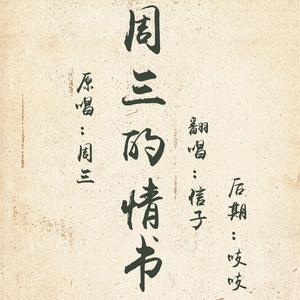 周三的情书
原唱：周三
翻唱：信子
后期：吱吱